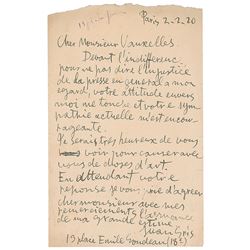 Paris 2-2-20
Cher Monsieur Vauxcelles.
Devant l'indifférence
pour ne pas dire l'injustice
de la presse en general a mon
egard, votre attitude envers
moi me touche et votre sym
pathie actuelle m'est encou
rageante.
Je serais tres heureux de vous
voir pour causer avec
vous de choses d'art
En attendant votre
reponse je vous prie d'agréer
cher monsieur avec mes
remerciements l'assurance
de ma grande estime
Juan Gris
13 place Emile Goudeau (18e)